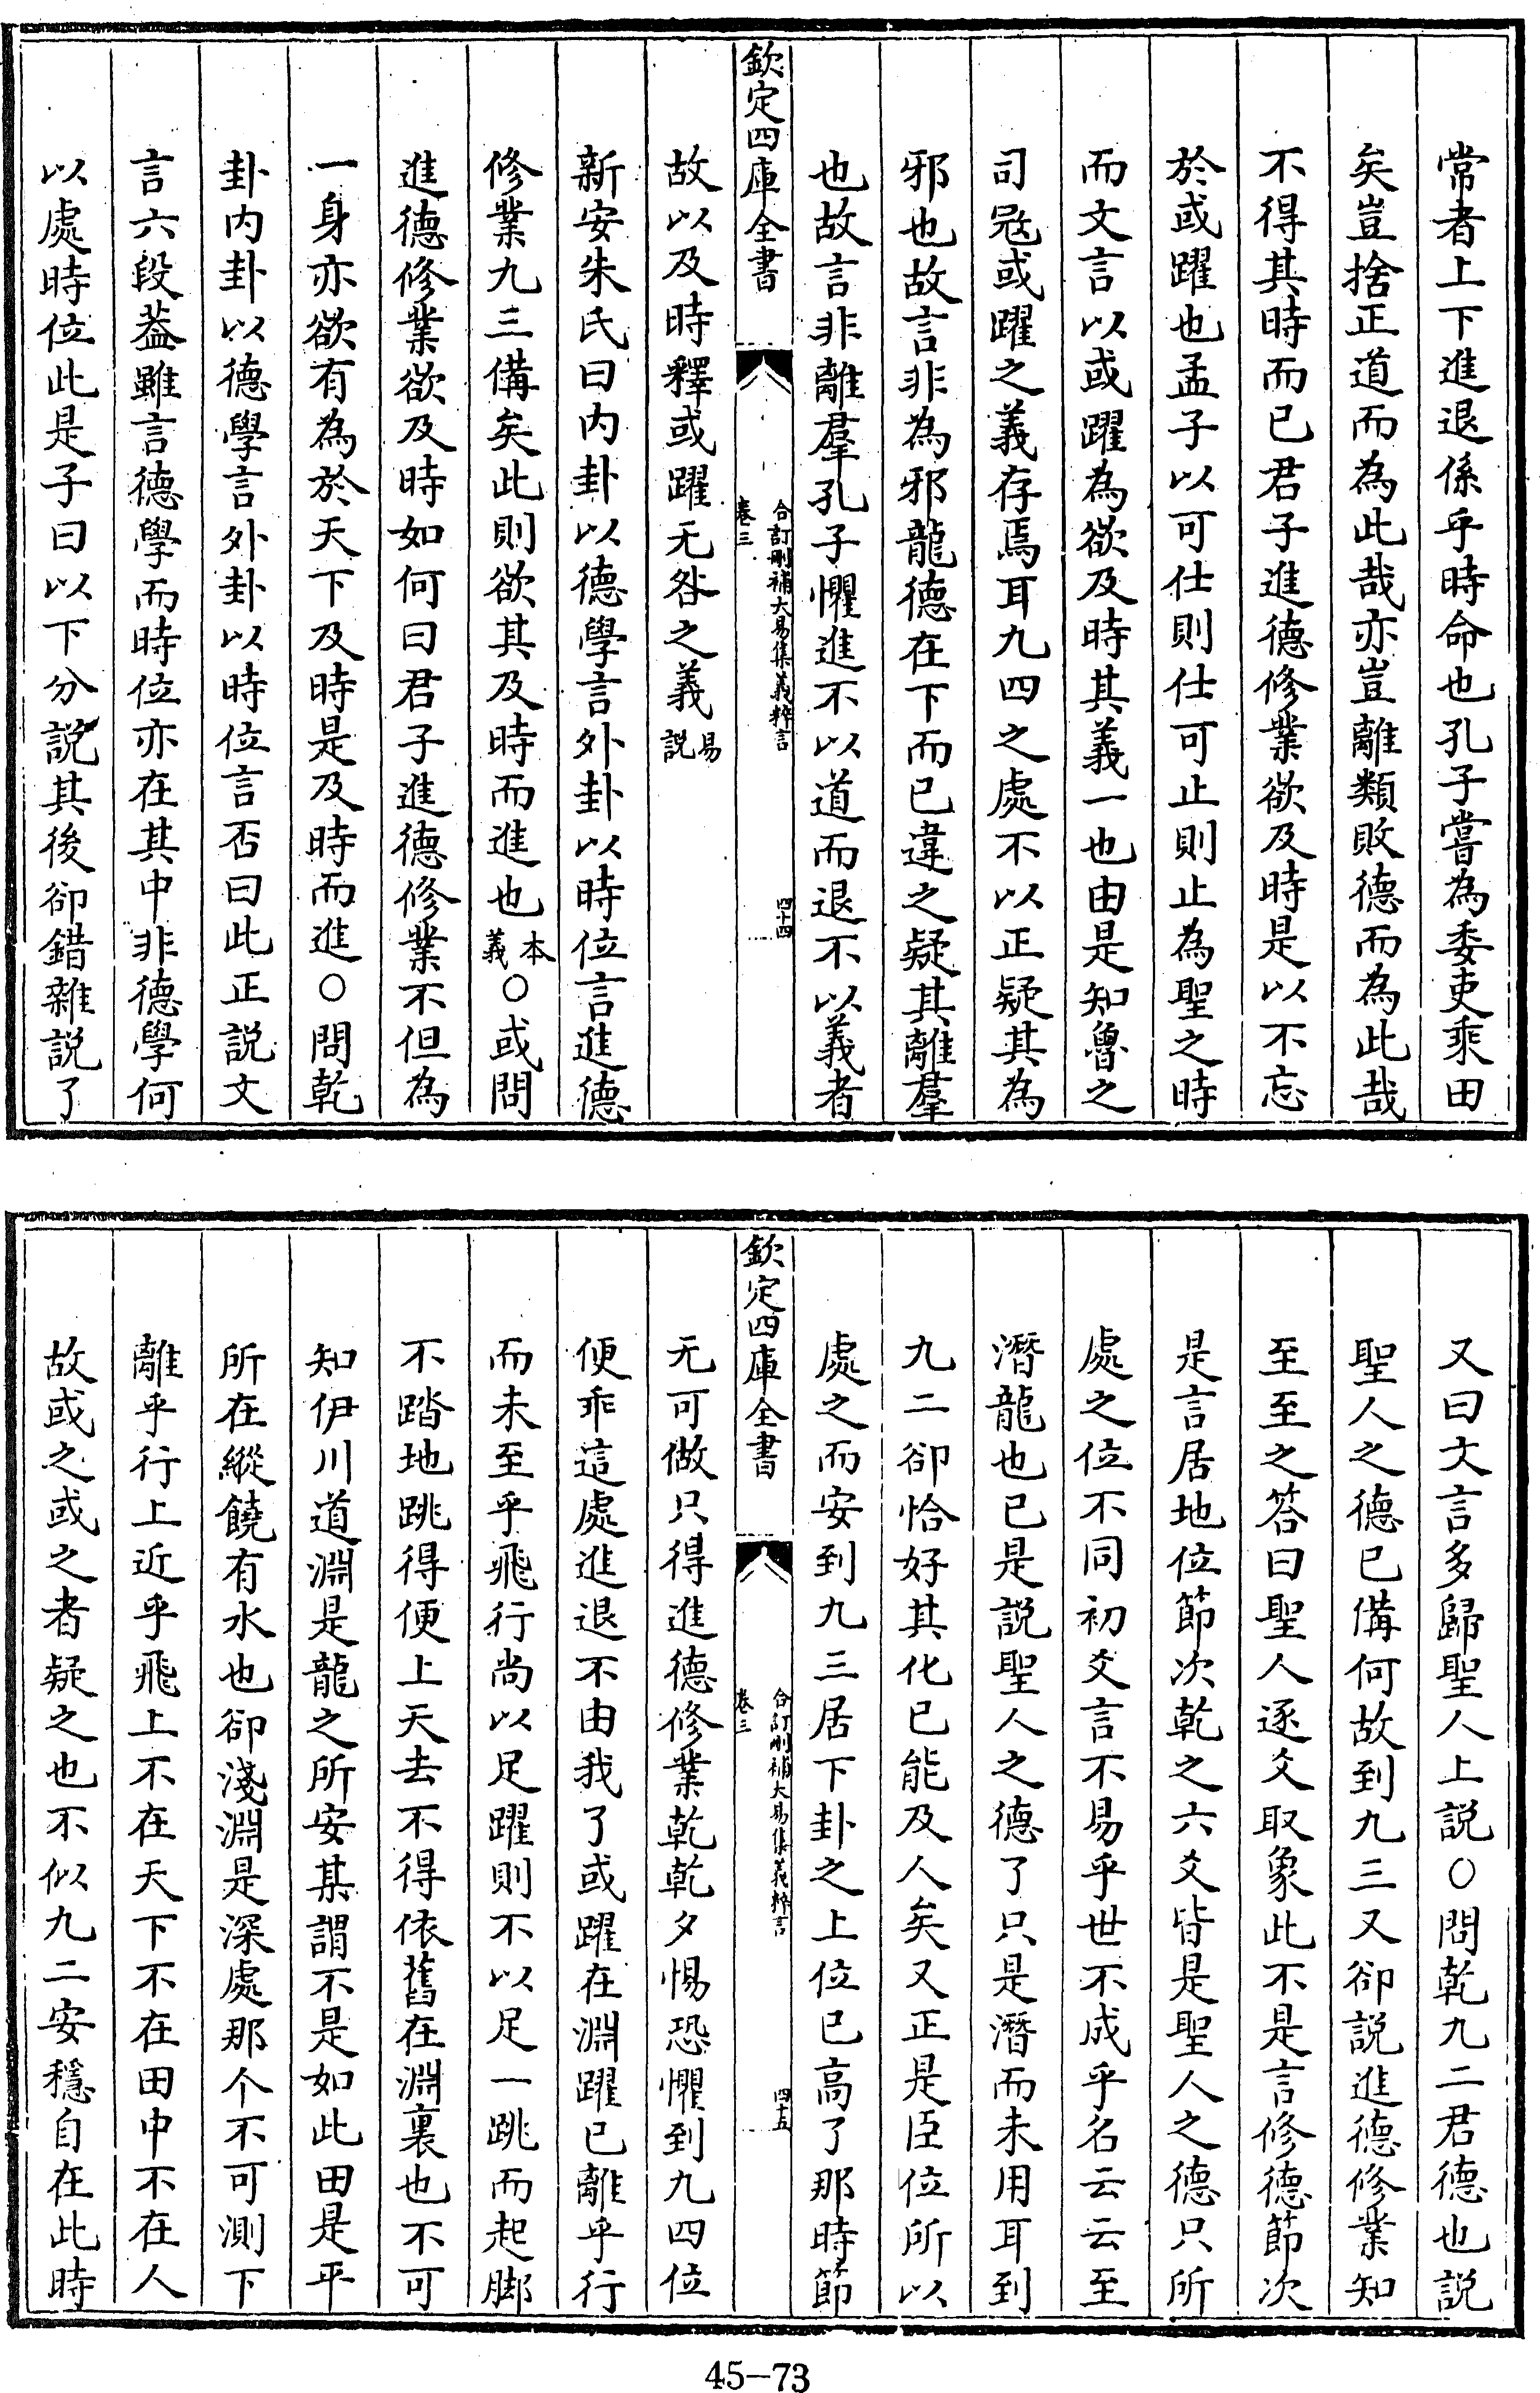 常者上下進退係乎時命也孔子嘗為委吏乘田
矣豈捨正道而為此哉亦豈離類敗德而為此哉
不得其時而已君子進德修業欲及時是以不忘
於或躍也孟子以可仕則仕可止則止為聖之時
而文言以或躍為欲及時其義一也由是知魯之
司寇或躍之義存焉耳九四之處不以正疑其為
邪也故言非為邪龍德在下而已違之疑其離羣
也故言非離羣孔子懼進不以道而退不以義者
欽定四庫全書
合訂刪補大易集義粹言
卷三
四十四
故以及時釋或躍无咎之義易說
新安朱氏曰内卦以德學言外卦以時位言進德
修業九三備矣此則欲其及時而進也本義○或問
進德修業欲及時如何曰君子進德修業不但為
一身亦欲有為於天下及時是及時而進○問乾
卦内卦以德學言外卦以時位言否曰此正説文
言六段葢雖言德學而時位亦在其中非德學何
以處時位此是子曰以下分説其後卻錯雜説了
又曰文言多歸聖人上説○問乾九二君德也説
聖人之德已備何故到九三又卻説進德修業知
至至之答曰聖人逐爻取象此不是言修德節次
是言居地位節次乾之六爻皆是聖人之德只所
處之位不同初爻言不易乎世不成乎名云云至
潛龍也已是説聖人之德了只是潛而未用耳到
九二卻恰好其化已能及人矣又正是臣位所以
處之而安到九三居下卦之上位已高了那時節
欽定四庫全書
合訂刪補大易集義粹言
卷三
四十五
无可做只得進德修業乾乾夕惕恐懼到九四位
便乖這處進退不由我了或躍在淵躍已離乎行
而未至乎飛行尚以足躍則不以足一跳而起脚
不踏地跳得便上天去不得依舊在淵裏也不可
知伊川道淵是龍之所安某謂不是如此田是平
所在縱饒有水也卻淺淵是深處那个不可測下
離乎行上近乎飛上不在天下不在田中不在人
故或之或之者疑之也不似九二安穩自在此時
45-73